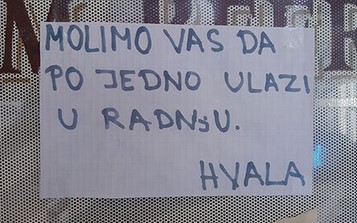 MOLIMO VAS DA
PO JEDNO ULAZI
U RADNJU.
HVALA